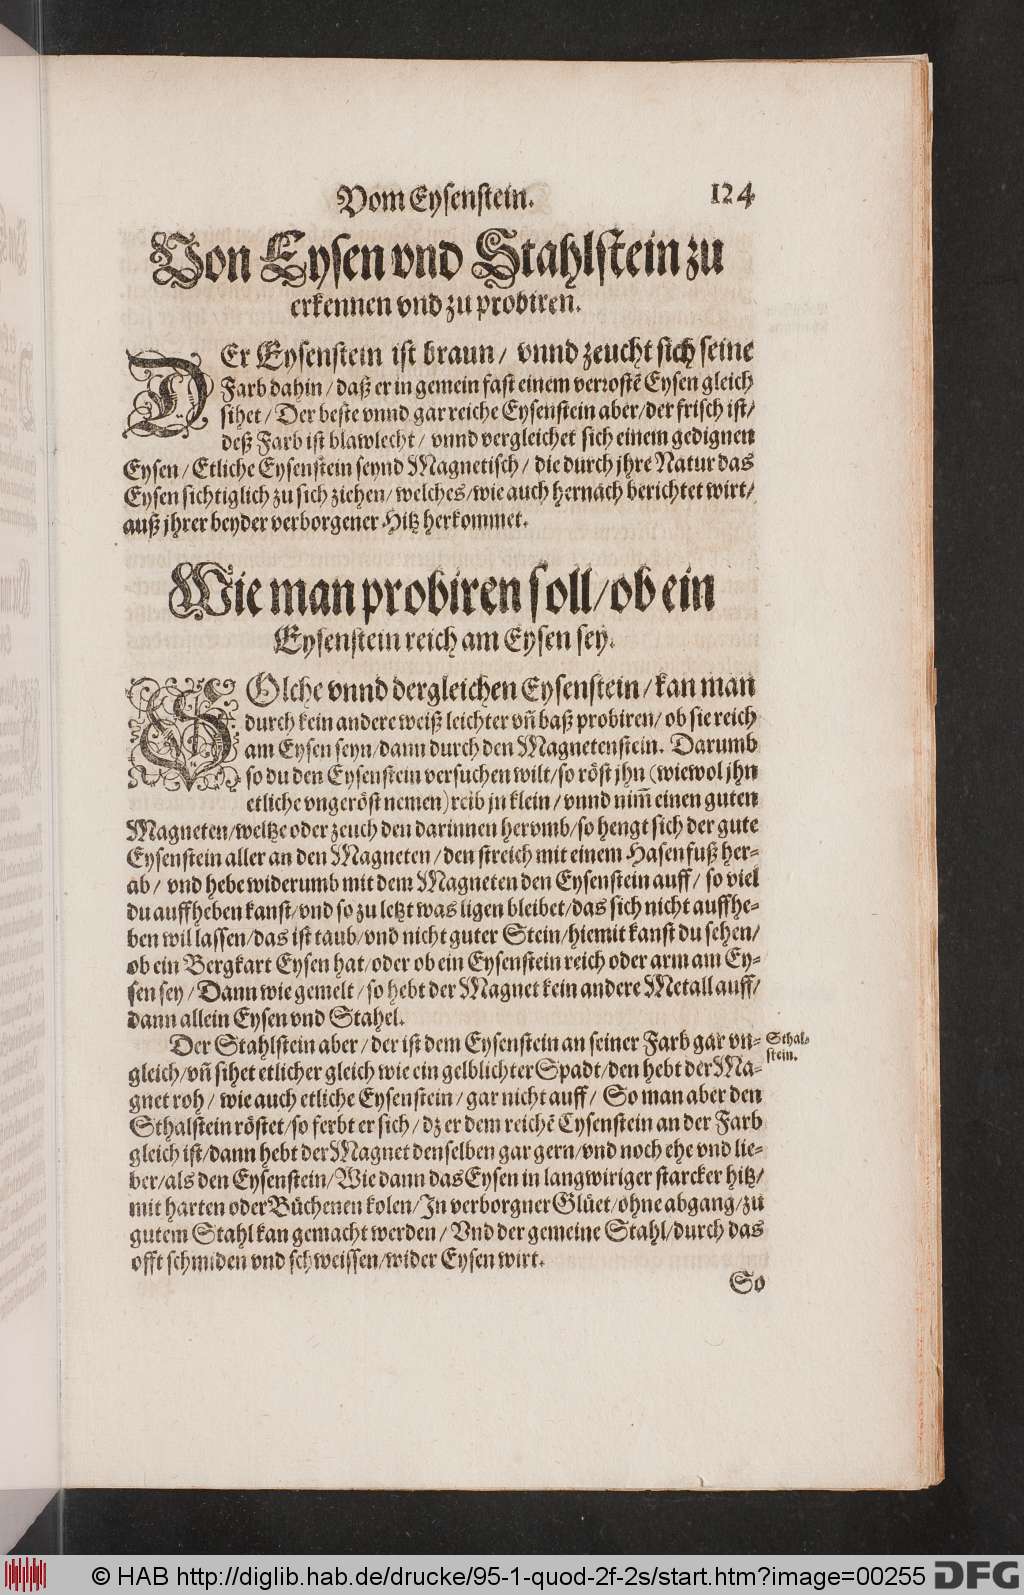 Vom Eysenstein. 124
Von Eysen vnd Stahlstein zu
erkennen vnd zu probiren.
DEr Eysenstein ist braun / vnnd zeucht sich seine
Farb dahin / daß er in gemein fast einem verrostẽ Eysen gleich
sihet / Der beste vnnd gar reiche Eysenstein aber / der frisch ist /
deß Farb ist blawlecht / vnnd vergleichet sich einem gedignen
Eysen / Etliche Eysenstein seynd Magnetisch / die durch jhre Natur das
Eysen sichtiglich zu sich ziehen / welches / wie auch hernach berichtet wirt /
auß jhrer beyder verborgener Hitz herkommet.
Wie man probiren soll / ob ein
Eysenstein reich am Eysen sey.
SOlche vnnd dergleichen Eysenstein / kan man
durch kein andere weiß leichter vñ baß probiren / ob sie reich
am Eysen seyn / dann durch den Magnetenstein. Darumb
so du den Eysenstein versuchen wilt / so röst jhn (wiewol jhn
etliche vngeröst nemen) reib jn klein / vnnd nim̃ einen guten
Magneten / weltze oder zeuch den darinnen hervmb / so hengt sich der gute
Eysenstein aller an den Magneten / den streich mit einem Hasenfuß her-
ab / vnd hebe widerumb mit dem Magneten den Eysenstein auff / so viel
du auffheben kanst / vnd so zu letzt was ligen bleibet / das sich nicht auffhe-
ben wil lassen / das ist taub / vnd nicht guter Stein / hiemit kanst du sehen /
ob ein Bergkart Eysen hat / oder ob ein Eysenstein reich oder arm am Ey-
sen sey / Dann wie gemelt / so hebt der Magnet kein andere Metall auff /
dann allein Eysen vnd Stahel.
Der Stahlstein aber / der ist dem Eysenstein an seiner Farb gar vn-
gleich / vñ sihet etlicher gleich wie ein gelblichter Spadt / den hebt der Ma-
gnet roh / wie auch etliche Eysenstein / gar nicht auff / So man aber den
Sthalstein röstet / so ferbt er sich / dz er dem reichẽ Eysenstein an der Farb
gleich ist / dann hebt der Magnet denselben gar gern / vnd noch ehe vnd lie-
ber / als den Eysenstein / Wie dann das Eysen in langwiriger starcker hitz /
mit harten oder Büchenen kolen / In verborgner Glüet / ohne abgang / zu
gutem Stahl kan gemacht werden / Vnd der gemeine Stahl / durch das
offt schmiden vnd schweissen / wider Eysen wirt.
Sthal-
stein.
So
© HAB http://diglib.hab.de/drucke/95-1-quod-2f-2s/start.htm?image=00255
DFG